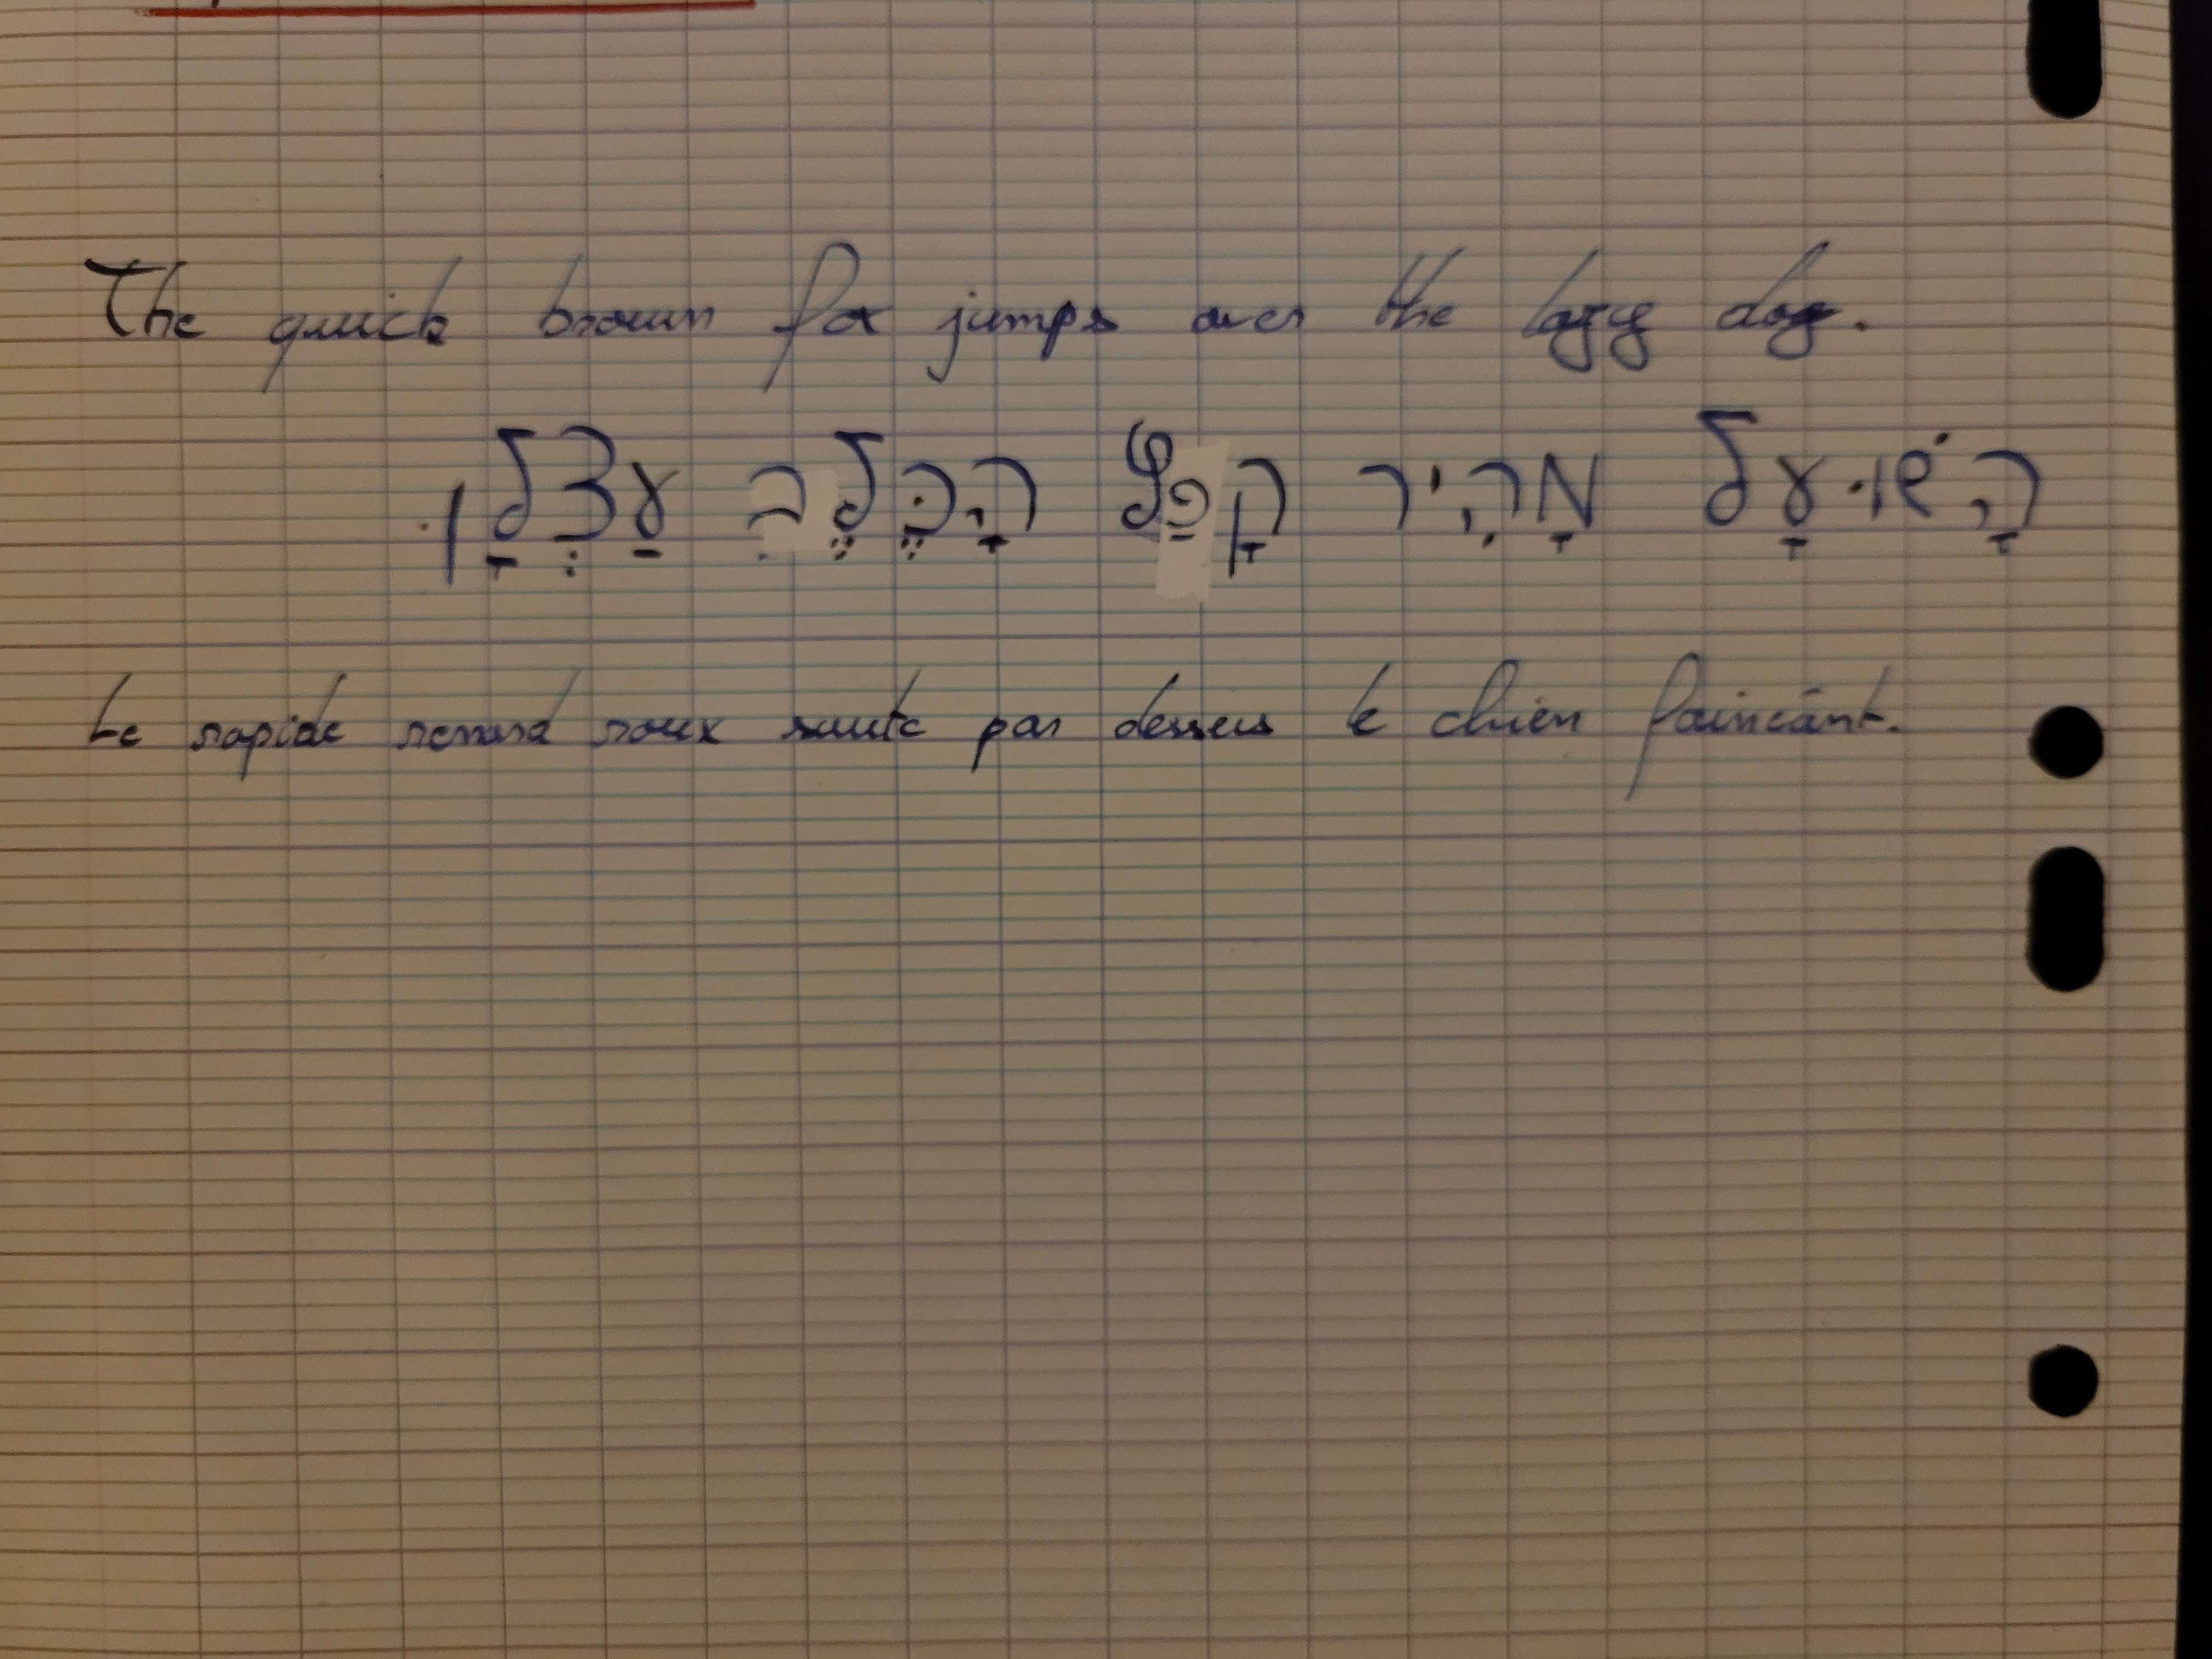 The quick brown fox jumps over the lazy dog.
הָשׁוּעָל מָהִיר קָפַץ הָכֶּלֶב עַצְלָן.
Le rapide renard roux saute par dessus le chien fainéant.